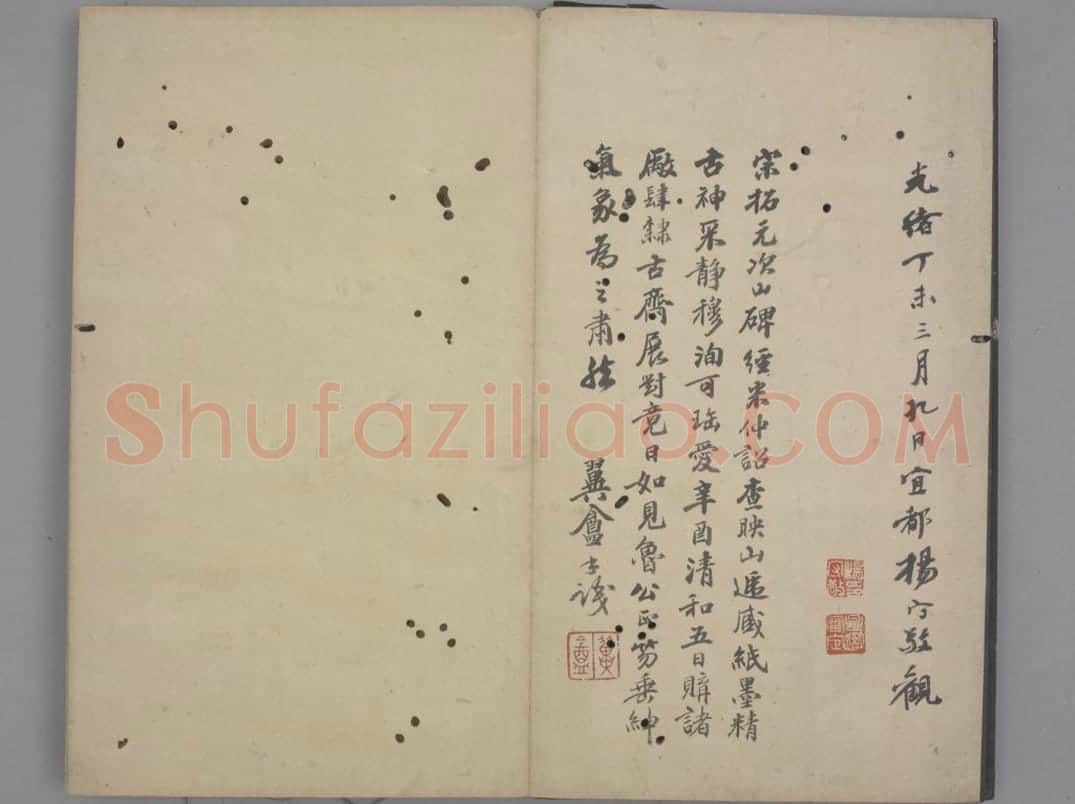 光緒丁未三月九日宜都楊守敬觀
宋拓元次山碑經米仲詔查映山遞藏紙墨精
古神采靜穆洵可珤愛辛酉清和五日購諸
廠肆隸古齋展對竟日如見魯公正笏垂紳
氣象為之肅然
翼盦志
翼盦
Shufaziliao.COM